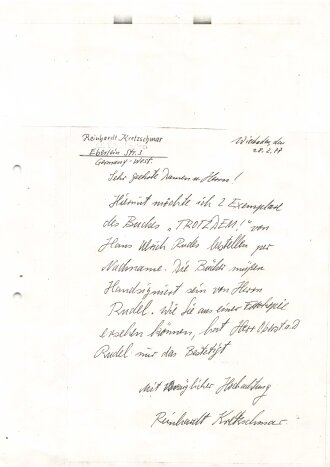 Reinhardt Kretzschmar
Eberlein Str. 5
Germany-West.
Wiesbaden den
28.2.
Sehr geehrte Damen u. Herrn!
Hiermit möchte ich 2 Exemplare
des Buches „TROTZDEM!“ von
Hans Ulrich Rudel bestellen per
Nachname. Die Bücher müßen
Handsigniert sein von Herrn
Rudel. Wie Sie aus einer Fotokopie
ersehen können, hat Herr Oberst
Rudel mir das Bestetigt
Mit Hochachtung
Reinhardt Kretzschmar